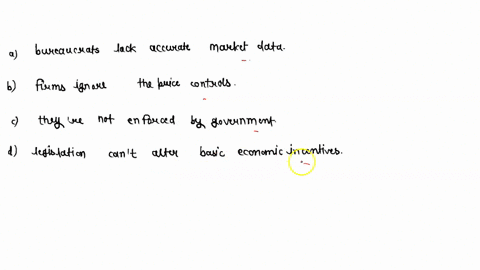 a) bureaucrats lack accurate market data.
b) firms ignore the price controls.
c) they're not enforced by government
d) legislation can't alter basic economic incentives.